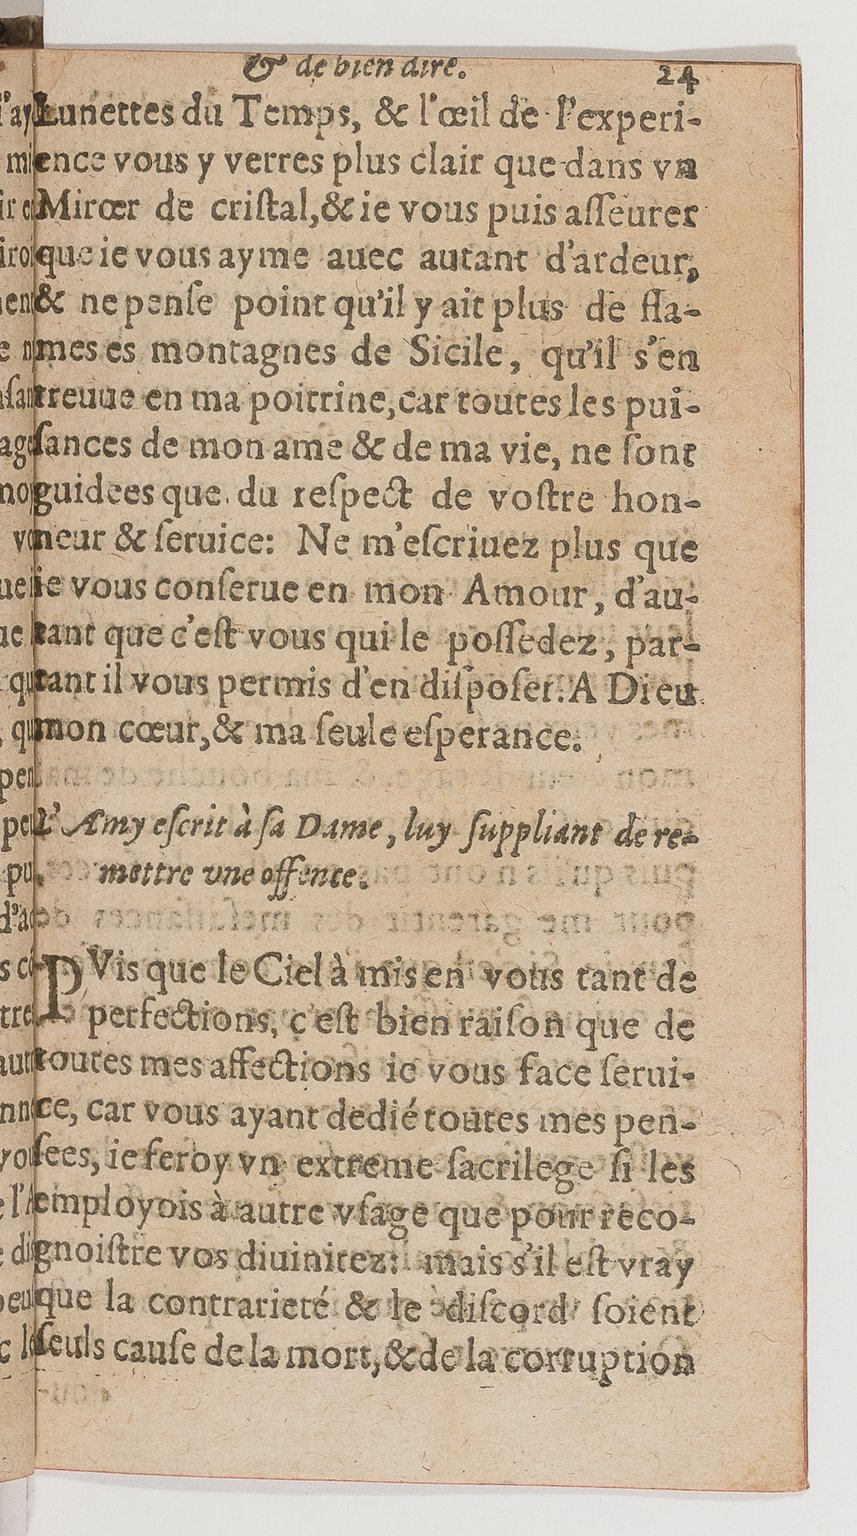 & de bien dire. 24
Lunettes du Temps, & l'œil de l'experi-
ence vous y verres plus clair que dans vn
Mirœr de criſtal, & ie vous puis aſſeurer
que ie vous ayme auec autant d'ardeur,
& ne penſe point qu'il y ait plus de fla-
mes es montagnes de Sicile, qu'il s'en
treuue en ma poitrine, car toutes les pui-
ſances de mon ame & de ma vie, ne ſont
guidees que du reſpect de voſtre hon-
neur & ſeruice: Ne m'eſcriuez plus que
ie vous conſerue en mon Amour, d'au-
tant que c'eſt vous qui le poſſedez, par-
tant il vous permis d'en diſpoſer. A Dieu
mon cœur, & ma ſeule eſperance.
L'Amy eſcrit à ſa Dame, luy ſuppliant de re-
mettre vne offence.
PVis que le Ciel à mis en vous tant de
perfections, c'eſt bien raiſon que de
toutes mes affections ie vous face ſerui-
ce, car vous ayant dedié toutes mes pen-
ſees, ie feroy vn extreme ſacrilege ſi les
employois à autre vſage que pour reco-
gnoiſtre vos diuinitez: mais s'il eſt vray
que la contrarieté & le diſcord ſoient
ſeuls cauſe de la mort, & de la corruption